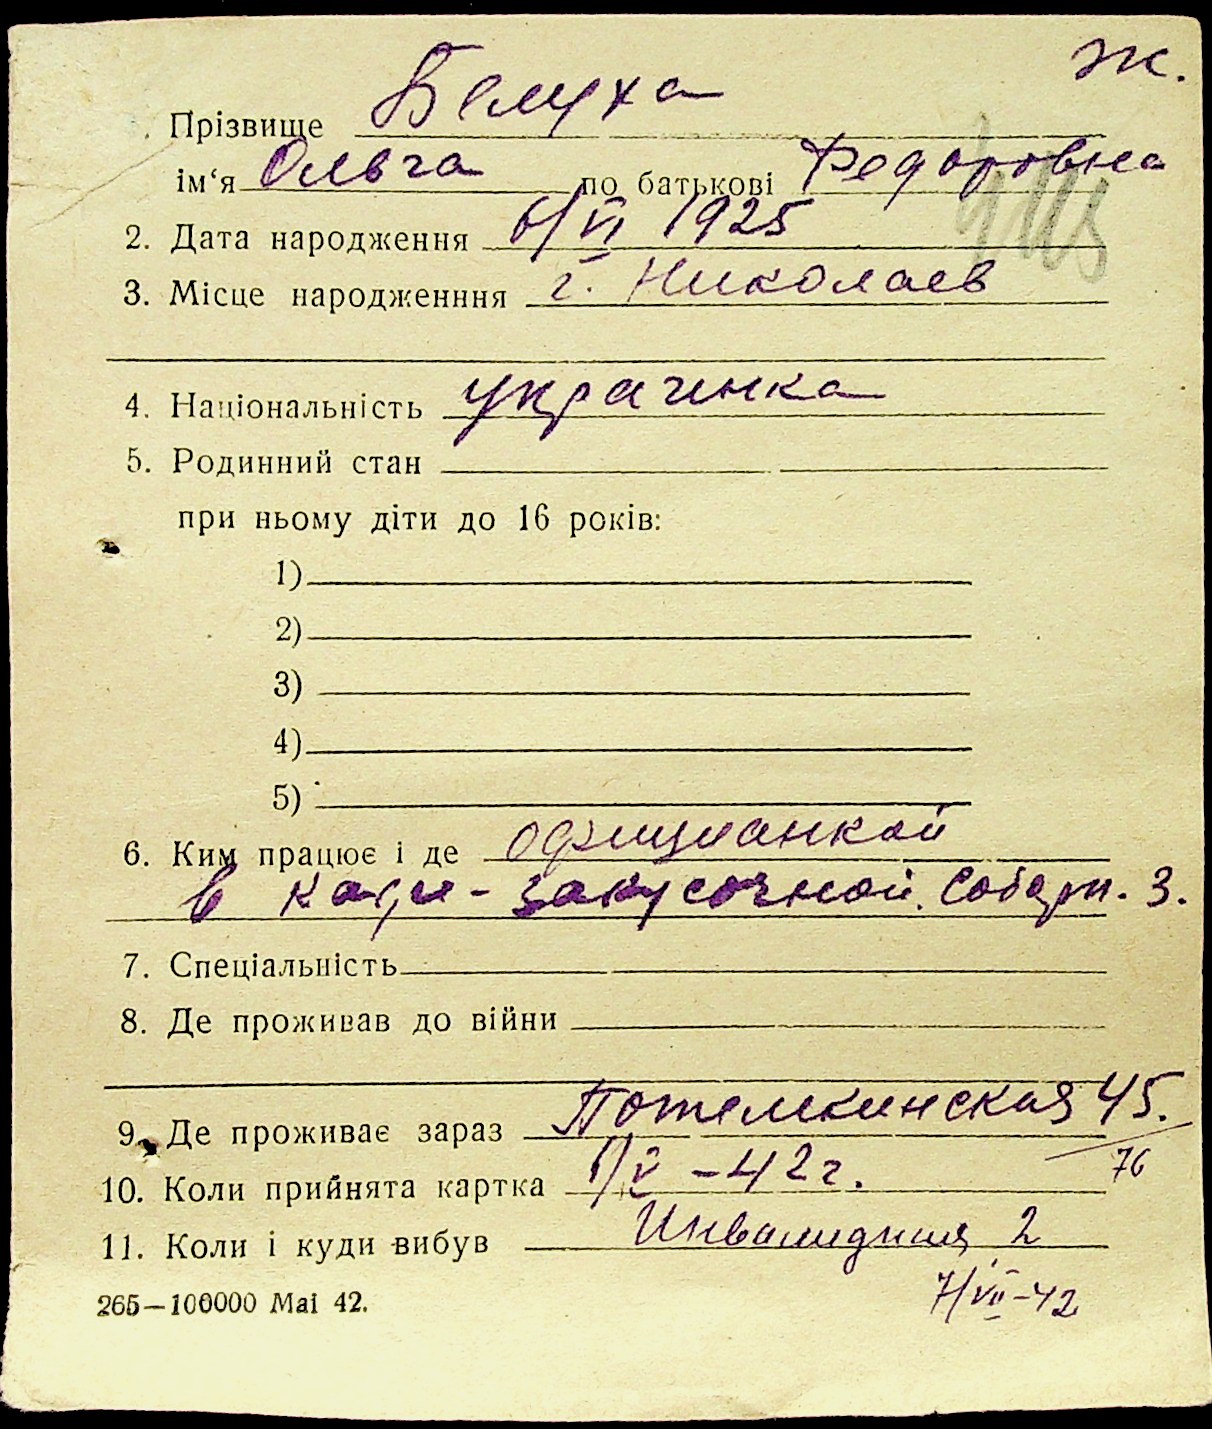 ж.
Прізвище Белуха
ім‘я Ольга по батькові Федоровна
2. Дата народження 6/VI 1925
3. Місце народженння г. Николаев
4. Національність украинка
5. Родинний стан
при ньому діти до 16 років:
1)
2)
3)
4)
5)
6. Ким працює і де официанкой
в кафе-закусочной. Соборн. 3.
7. Спеціальність
8. Де проживав до війни
9. Де проживає зараз Потемкинская 45.
76
10. Коли прийнята картка 1/V -42 г.
11. Коли і куди вибув Инвалидная 2
7/VII-42
265—100000 Mai 42.